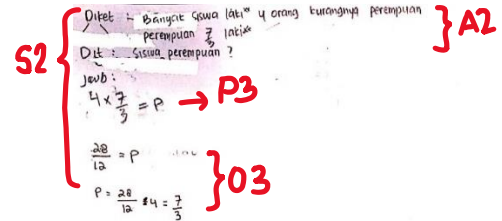 Diket : Banyak siswa laki² 4 orang kurangnya perempuan
perempuan 7/3 laki² } A2
S2 { Dit : Siswa perempuan ?
Jawb :
4 × 7/3 = P → P3
28/12 = P
P = 28/12 : 4 = 7/3 } O3